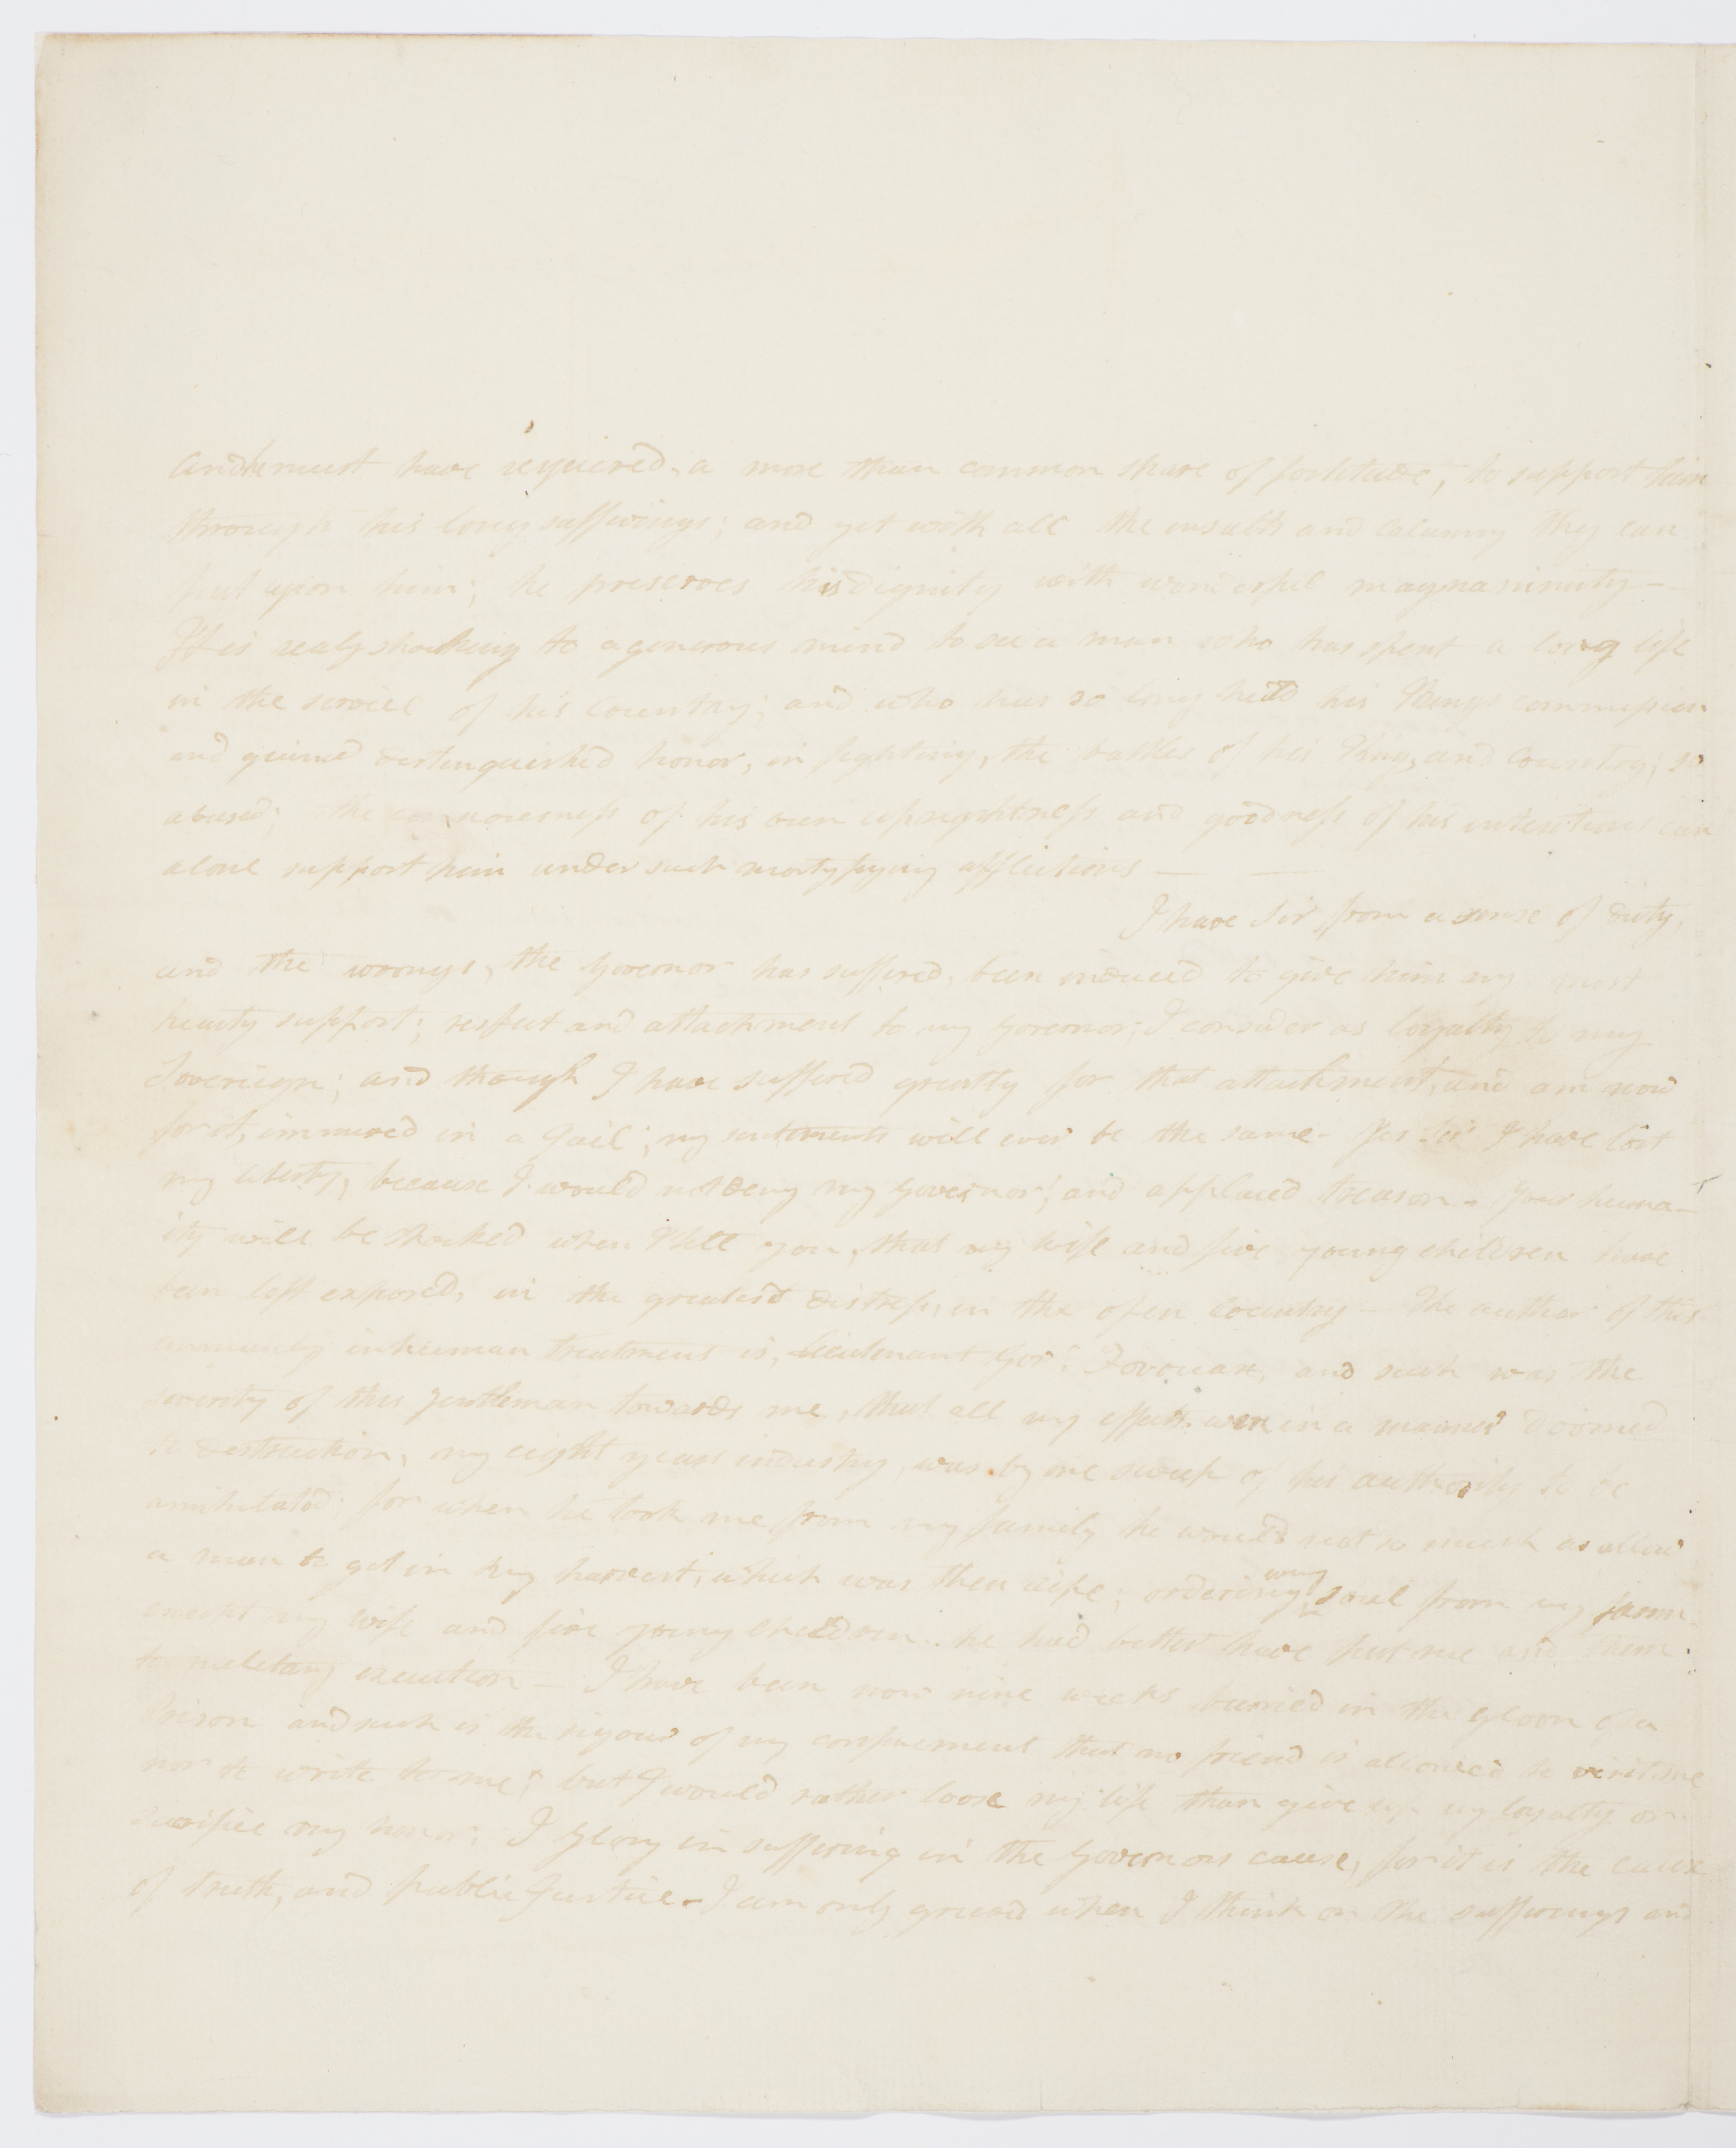 and it must have required, a more than common share of fortitude, to support him
through his long sufferings; and yet with all the insults and calumny they can
put upon him; he preserves his dignity with wonderful magnanimity —
It is realy shocking to a generous mind to see a man who has spent a long life
in the service of his Country; and who has so long held his Kings commission
and gained distinguished honor, in fighting, the battles of his King, and Country; so
abused; the consciousness of his own uprightness and goodness of his intentions can
alone support him under such mortyfying afflictions — —
I have Sir from a sense of duty,
and the wrongs, the Governor has suffered, been induced to give him my most
hearty support; respect and attachment to my Governor, I consider as loyalty to my
Sovereign; and though I have suffered greatly for that attachment, and am now
for it, immured in a Gail; my sentiments will ever be the same - Yes Sir I have lost
my liberty, because I would not deny my Governor; and applaud treason - Your huma-
ity will be shocked when I tell you, that my wife and five young children have
been left exposed, in the greatest distress, in the open Country - The author of this
inhuman treatment is, Lieutenant Govr. Fovouax, and such was the
severity of this Gentleman towards me, that all my effects were in a manner doomed
to destruction, my eight years industry, was by one sweep of his authority to be
annihilated; for when he took me from my family he would not so much as allow
a man to get in my harvest, which was then ripe; ordering every soul from my farm
except my wife and five young children.. he had better have put me and them
to military execution — I have been now nine weeks burried in the gloom of a
Prison and such is the rigour of my confinement that no friend is allowed to visit me
nor to write to me; but I would rather loose my life than give up my loyalty or
sacrifice my honor; I glory in suffering in the Governors cause, for it is the cause
of truth, and public Justice - I am only grieved when I think on the sufferings and